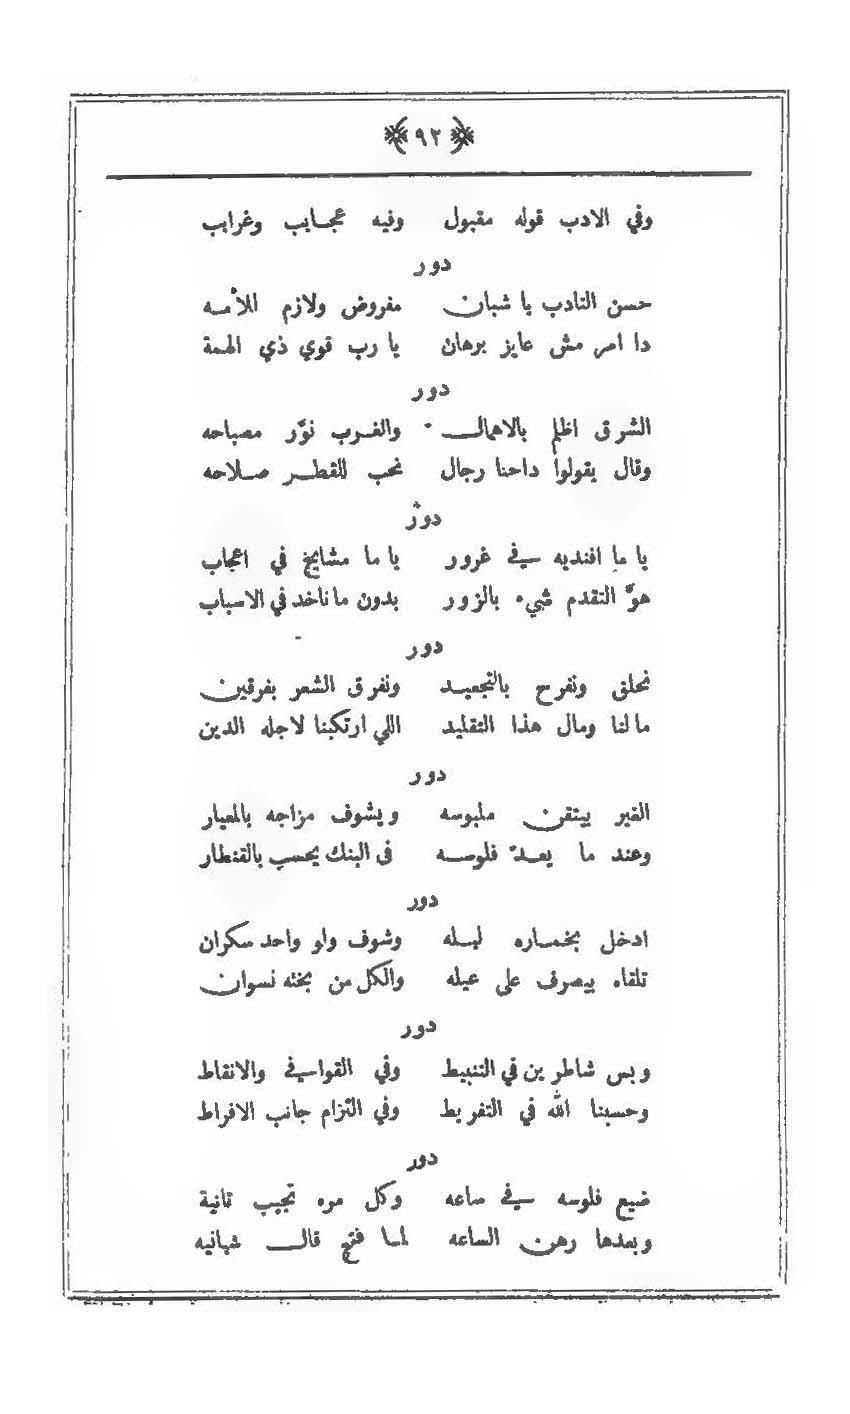 ﴿ ٩٢ ﴾
وفي الادب قوله مقبول وفيه عجـايب وغرايب
دور
حسن التادب يا شبان مفروض ولازم للأمـه
دا امر مش عايز برهان يا رب قوي ذي الهمة
دور
الشرق اظلم بالاهمال والغرب نوَّر مصباحه
وقال يقولوا داحنا رجال نحب للقطر صلاحه
دور
يا ما افنديه في غرور يا ما مشايخ في اعجاب
هوَّ التقدم شيء بالزور بدون ما ناخد في الاسباب
دور
نحلق ونفرح بالتجعيد ونفرق الشعر بفرقين
ما لنا ومال هذا التقليد اللي ارتكبنا لاجله الدين
دور
الغير يتقن ملبوسه ويشوف مزاجه بالمعيار
وعند ما يعدّ فلوسه في البنك يحسب بالقنطار
دور
ادخل بخماره ليله وشوف ولو واحد سكران
تلقاه يصرف على عيله والكل من بخته نسوان
دور
وبس شاطرين في التنبيط وفي القوافي والانقاط
وحسبنا الله في التفريط وفي التزام جانب الافراط
دور
ضيع فلوسه في ساعه وكل مره تجيب تانية
وبعدها رهن الساعه لما فتح قال شبانيه